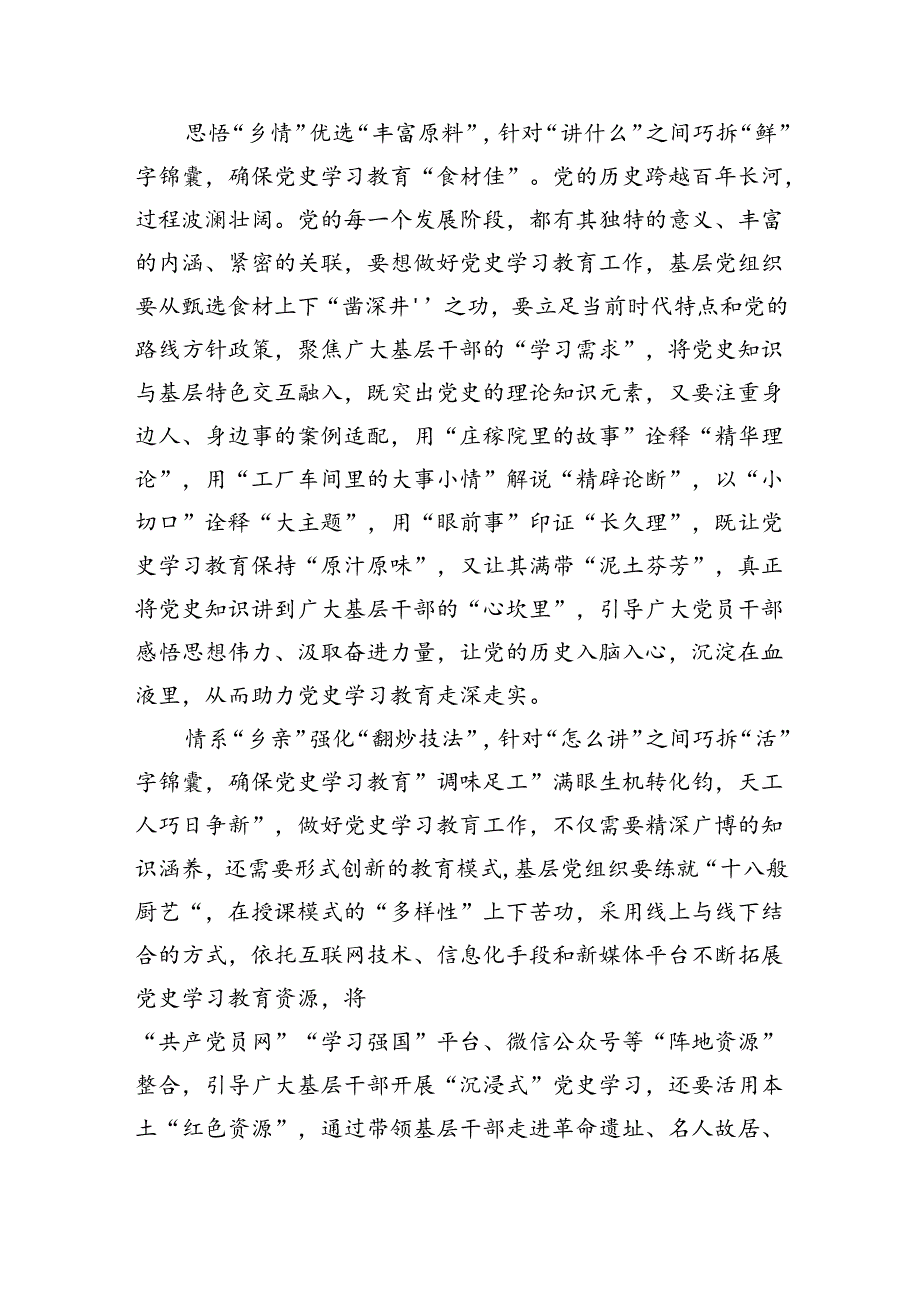 思悟“乡情”优选“丰富原料”，针对“讲什么”之间巧拆“鲜”
字锦囊，确保党史学习教育“食材佳”。党的历史跨越百年长河，
过程波澜壮阔。党的每一个发展阶段，都有其独特的意义、丰富
的内涵、紧密的关联，要想做好党史学习教育工作，基层党组织
要从甄选食材上下“凿深井'’之功，要立足当前时代特点和党的
路线方针政策，聚焦广大基层干部的“学习需求”，将党史知识
与基层特色交互融入，既突出党史的理论知识元素，又要注重身
边人、身边事的案例适配，用“庄稼院里的故事”诠释“精华理
论”，用“工厂车间里的大事小情”解说“精辟论断”，以“小
切口”诠释“大主题”，用“眼前事”印证“长久理”，既让党
史学习教育保持“原汁原味”，又让其满带“泥土芬芳”，真正
将党史知识讲到广大基层干部的“心坎里”，引导广大党员干部
感悟思想伟力、汲取奋进力量，让党的历史入脑入心，沉淀在血
液里，从而助力党史学习教育走深走实。
情系“乡亲”强化“翻炒技法”，针对“怎么讲”之间巧拆“活”
字锦囊，确保党史学习教育”调味足工”满眼生机转化钧，天工
人巧日争新”，做好党史学习教育工作，不仅需要精深广博的知
识涵养，还需要形式创新的教育模式,基层党组织要练就“十八般
厨艺“，在授课模式的“多样性”上下苦功，采用线上与线下结
合的方式，依托互联网技术、信息化手段和新媒体平台不断拓展
党史学习教育资源，将
“共产党员网”“学习强国”平台、微信公众号等“阵地资源”
整合，引导广大基层干部开展“沉浸式”党史学习，还要活用本
土“红色资源”，通过带领基层干部走进革命遗址、名人故居、